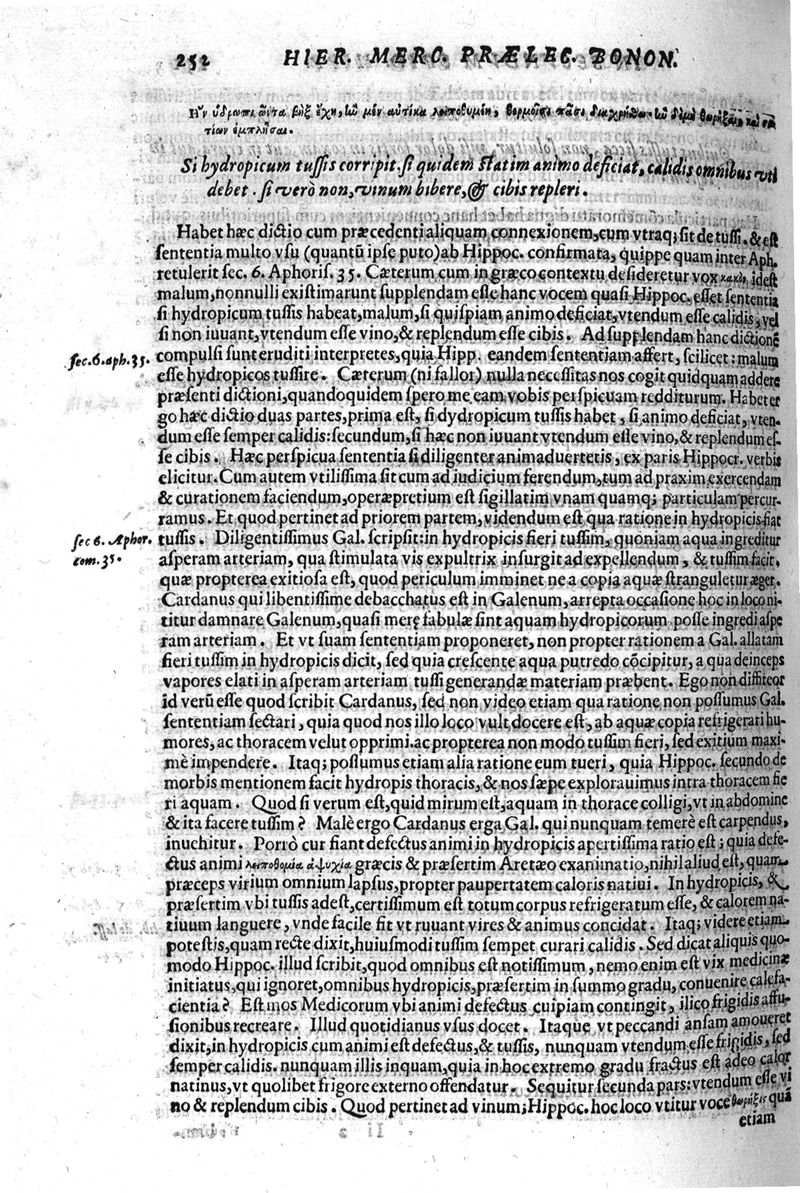 252 HIER. MERC. PRÆLEC. BONON.
Si hydropicum tussis corripit. si quidem statim animo deficiat, calidis omnibus vti
debet. si verò non, vinum bibere, & cibis repleri.
Habet hæc dictio cum præcedenti aliquam connexionem, cum vtraq; sit de tussi. & est
sententia multo vsu (quantũ ipse puto) ab Hippoc. confirmata, quippe quam inter Aph.
retulerit sec. 6. Aphoris. 35. Cæterum cum in græco contextu desideretur vox idest
malum, nonnulli existimarunt supplendam esse hanc vocem quasi Hippoc. esset sententia
si hydropicum tussis habeat, malum, si quispiam animo deficiat, vtendum esse calidis, vel
si non iuuant, vtendum esse vino, & replendum esse cibis. Ad supplendam hanc dictionẽ
sec. 6. aph. 35. compulsi sunt eruditi interpretes, quia Hipp. eandem sententiam affert, scilicet: malum
esse hydropicos tussire. Cæterum (ni fallor) nulla necessitas nos cogit quidquam addere
præsenti dictioni, quandoquidem spero me eam vobis perspicuam redditurum. Habet er
go hæc dictio duas partes, prima est, si dydropicum tussis habet, si animo deficiat, vten-
dum esse semper calidis: secundum, si hæc non iuuant vtendum esse vino, & replendum es-
se cibis. Hæc perspicua sententia si diligenter animaduertetis, ex paris Hippocr. verbis
elicitur. Cum autem vtilissima sit cum ad iudicium ferendum, tum ad praxim exercendam
& curationem faciendum, operæpretium est sigillatim vnam quamq; particulam percur-
ramus. Et quod pertinet ad priorem partem, videndum est qua ratione in hydropicis fiat
sec 6. Aphor. tussis. Diligentissimus Gal. scripsit: in hydropicis fieri tussim, quoniam aqua ingreditur
com. 35. asperam arteriam, qua stimulata vis expultrix insurgit ad expellendum, & tussim facit,
quæ propterea exitiosa est, quod periculum imminet ne a copia aquæ stranguletur æger.
Cardanus qui libentissime debacchatus est in Galenum, arrepta occasione hoc in loco ni-
titur damnare Galenum, quasi merę fabulæ sint aquam hydropicorum posse ingredi aspe
ram arteriam. Et vt suam sententiam proponeret, non propter rationem a Gal. allatam
fieri tussim in hydropicis dicit, sed quia crescente aqua putredo cõcipitur, a qua deinceps
vapores elati in asperam arteriam tussi generandæ materiam præbent. Ego non diffiteor
id verũ esse quod scribit Cardanus, sed non video etiam qua ratione non possumus Gal.
sententiam sectari, quia quod nos illo loco vult docere est, ab aquæ copia refrigerari hu-
mores, ac thoracem velut opprimi. ac propterea non modo tussim fieri, sed exitium maxi-
mè impendere. Itaq; possumus etiam alia ratione eum tueri, quia Hippoc. secundo de
morbis mentionem facit hydropis thoracis, & nos sæpe explorauimus intra thoracem fie
ri aquam. Quod si verum est, quid mirum est, aquam in thorace colligi, vt in abdomine
& ita facere tussim? Malè ergo Cardanus erga Gal. qui nunquam temerè est carpendus,
inuehitur. Porrò cur fiant defectus animi in hydropicis apertissima ratio est; quia defe-
ctus animi λειποθομία ἀψυχία græcis & præsertim Aretæo exanimatio, nihil aliud est, quam
præceps virium omnium lapsus, propter paupertatem caloris natiui. In hydropicis, &
præsertim vbi tussis adest, certissimum est totum corpus refrigeratum esse, & calorem na-
tiuum languere, vnde facile fit vt ruuant vires & animus concidat. Itaq; videre etiam
potestis, quam recte dixit, huiusmodi tussim sempet curari calidis. Sed dicat aliquis quo-
modo Hippoc. illud scribit, quod omnibus est notissimum, nemo enim est vix medicinæ
initiatus, qui ignoret, omnibus hydropicis, præsertim in summo gradu, conuenire calefa-
cientia? Est mos Medicorum vbi animi defectus cuipiam contingit, ilico frigidis affu-
sionibus recreare. Illud quotidianus vsus docet. Itaque vt peccandi ansam amoueret
dixit, in hydropicis cum animi est defectus, & tussis, nunquam vtendum esse frigidis, sed
semper calidis. nunquam illis inquam, quia in hoc extremo gradu fractus est adeo calor
natinus, vt quolibet frigore externo offendatur. Sequitur secunda pars: vtendum esse vi
no & replendum cibis. Quod pertinet ad vinum; Hippoc. hoc loco vtitur voce θωρῆξις quã
etiam